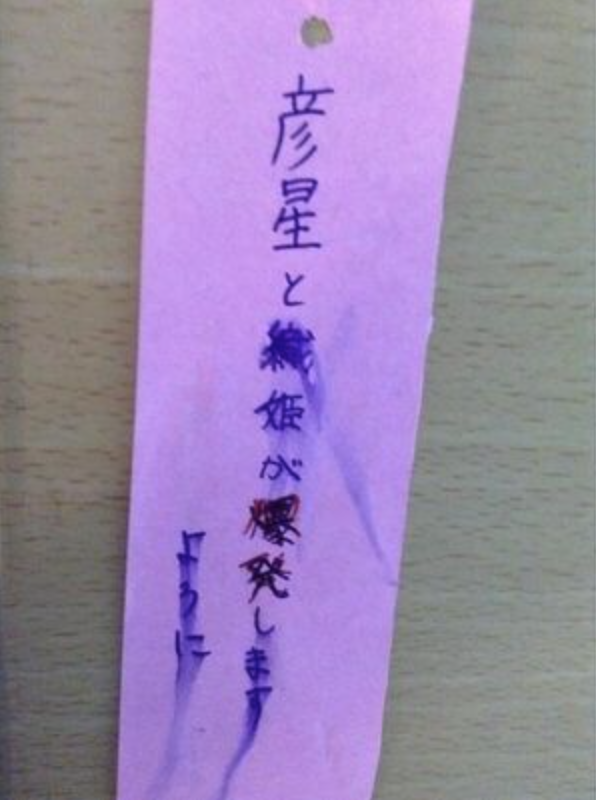 彦星と織姫が爆発します
ように